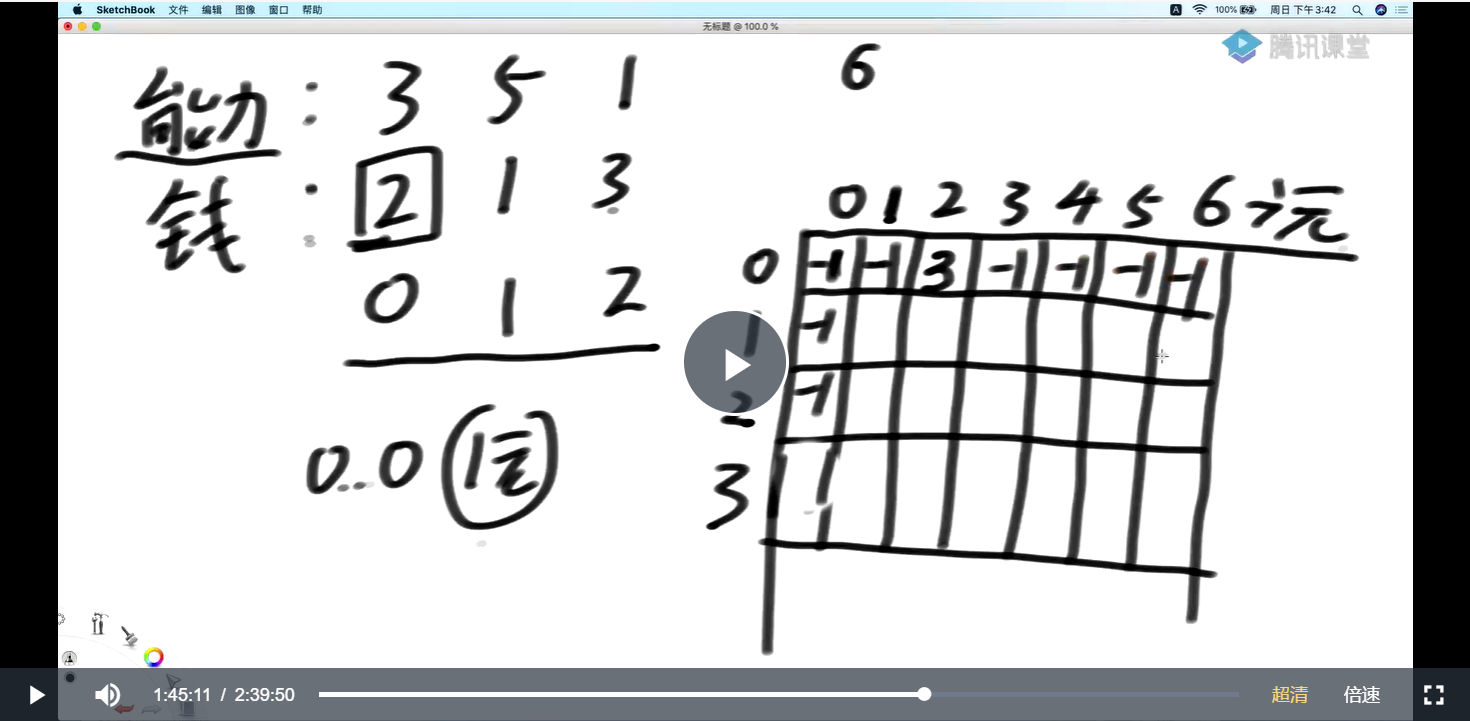 SketchBook 文件 编辑 图像 窗口 帮助
A 100% 周日 下午3:42
无标题 @ 100.0 %
腾讯课堂
能力: 3 5 1
6
钱: 2 1 3
0 1 2
0..0 1元
0 1 2 3 4 5 6 元
0 -1 -1 3 -1 -1 -1 -1
1 -1
2 -1
3
1:45:11 / 2:39:50
超清 倍速